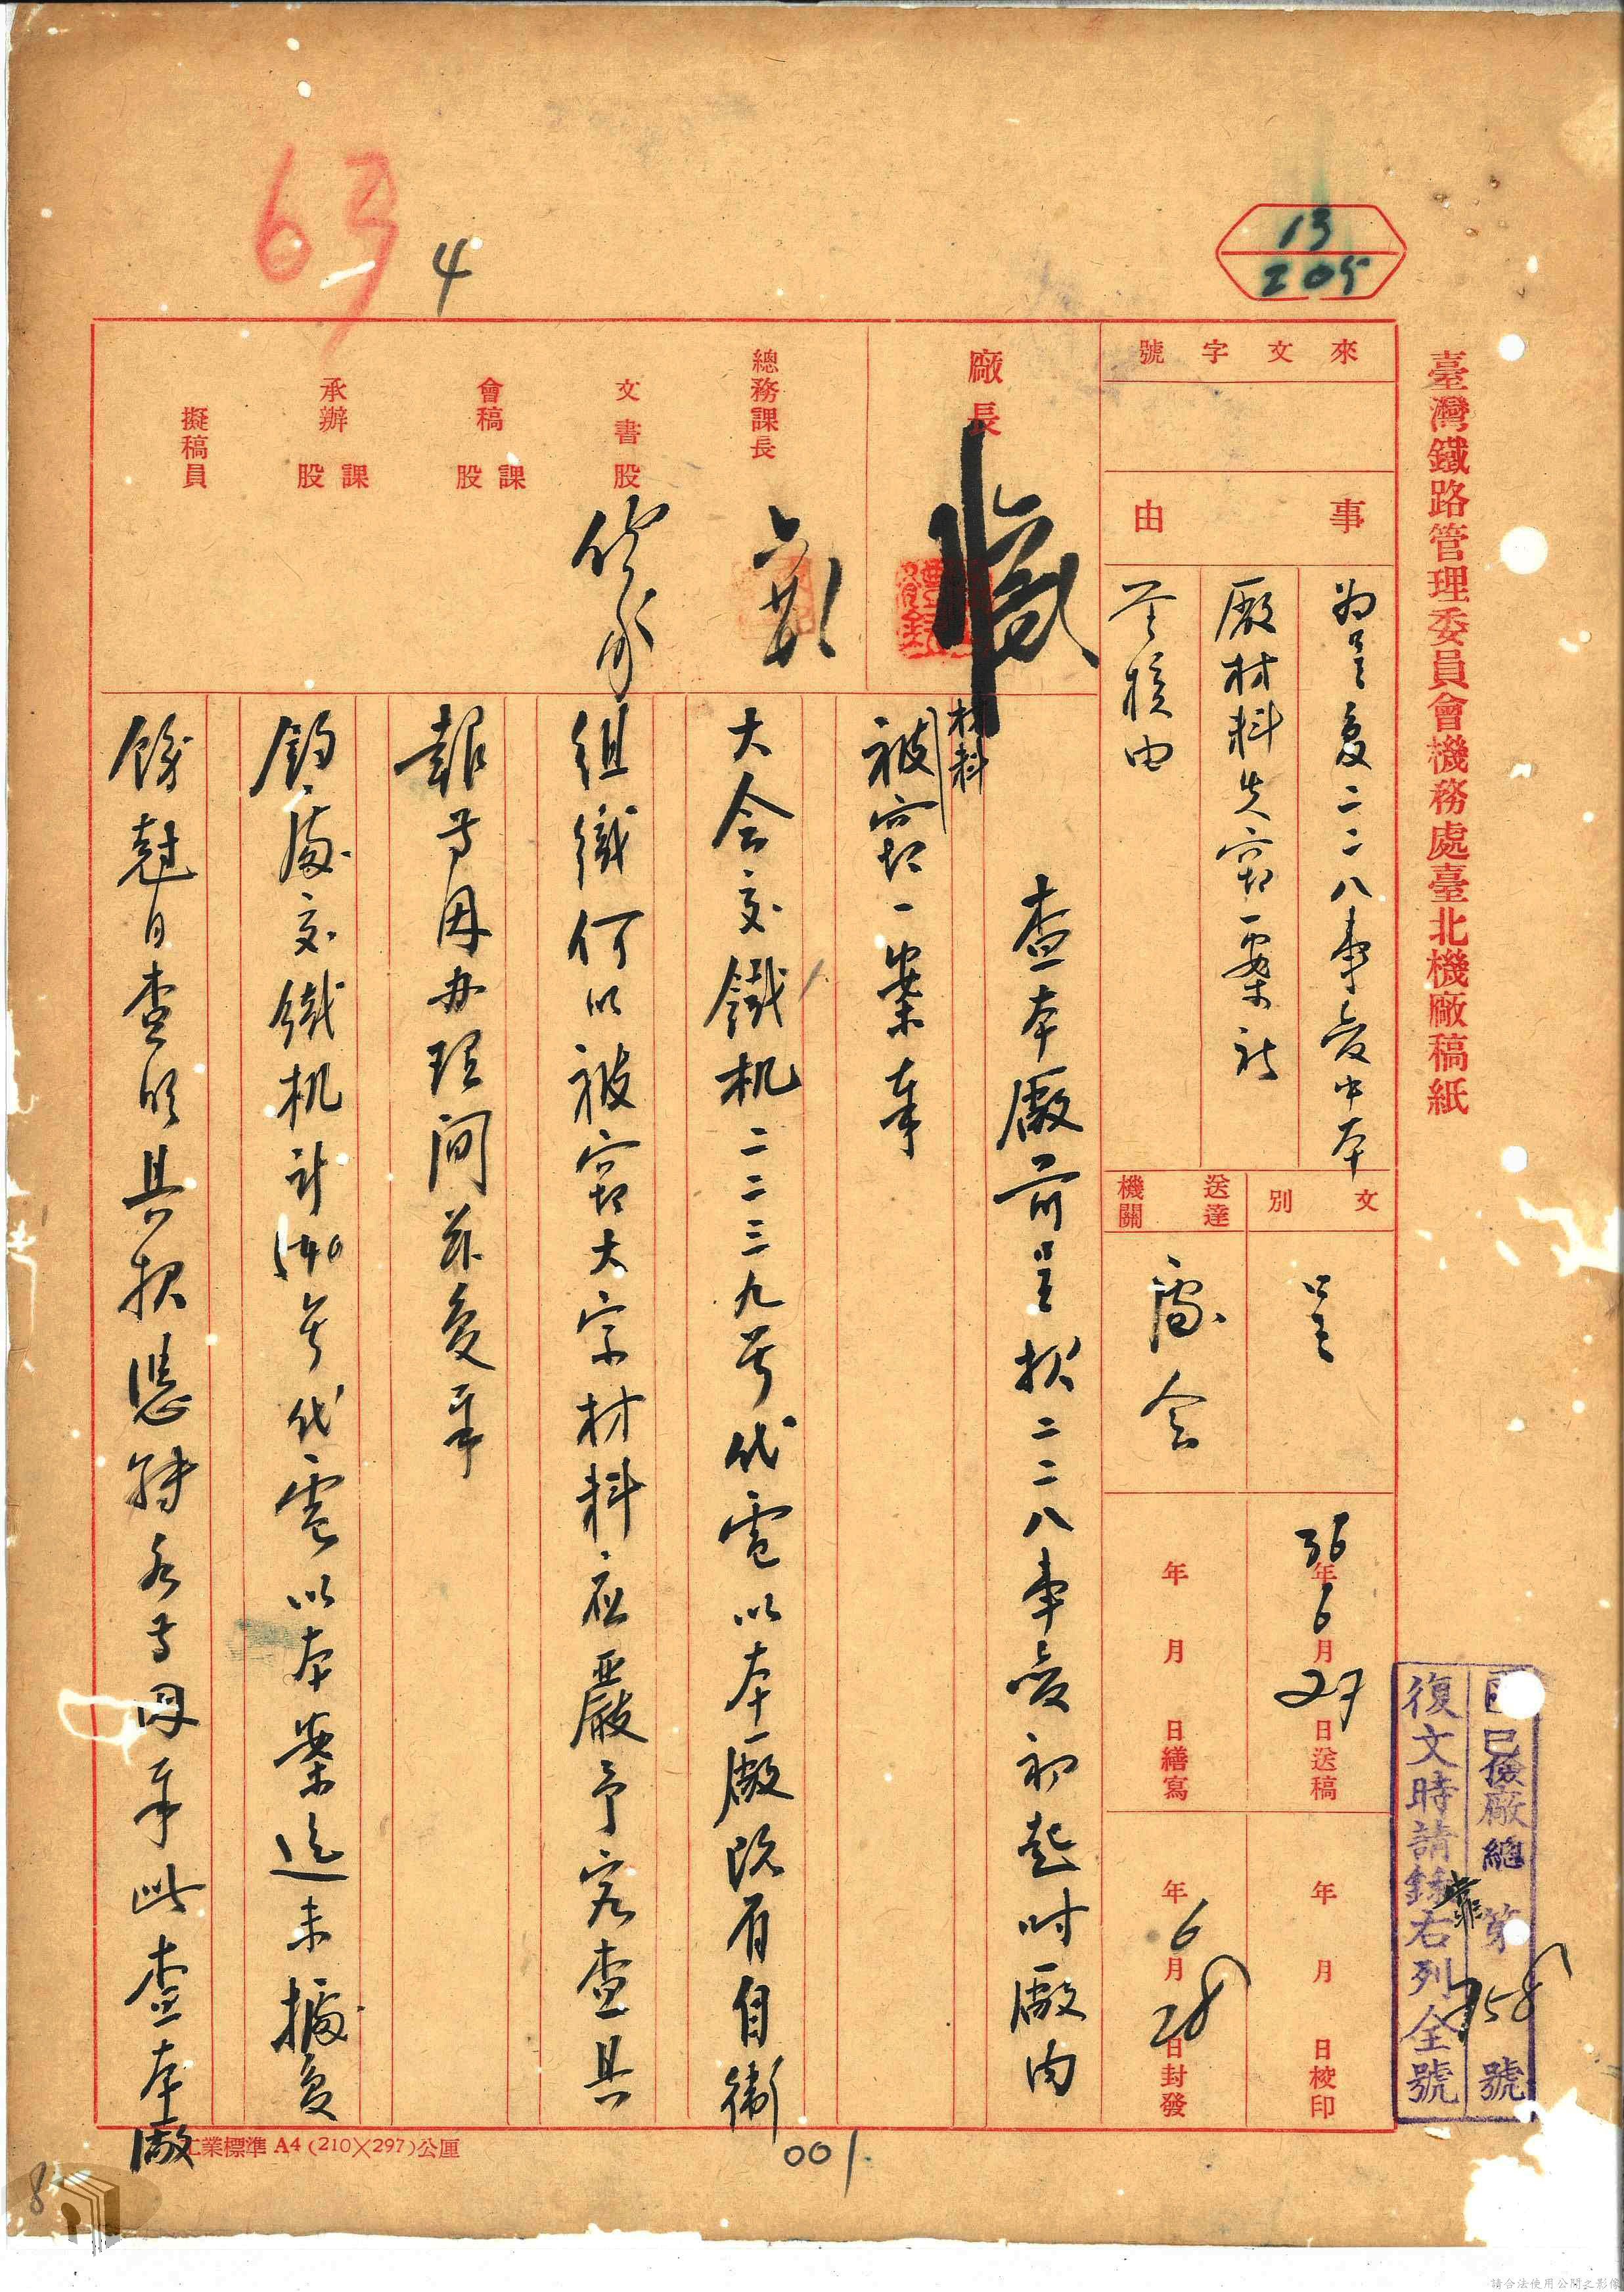 臺灣鐵路管理委員會機務處臺北機廠稿紙
13
205
來文字號
事由
為呈復二二八事變中本
廠材料失竊一案祈
鑒核由
文別
呈
送達機關
處 會
36年6月27日送稿
年月日繕寫
年月日校印
年6月28日封發
已機廠總第758號
復文時請錄右列全號
廠長
總務課長
文書股
會稿 課股
承辦 課股
擬稿員
查本廠前呈報二二八事變初起時廠內
材料
被竊一案奉
大會交鐵机二二三九号代電以本廠既有自衛
組織何以被竊大宗材料应嚴予密查具
報等因办理间兹复奉
鈞處交鐵机計140号代電以本案迄未據复
飭尅日查明具报憑轉各等因奉此查本廠
63
4
工業標準 A4 (210×297)公厘
001
8
請合法使用公開之影像